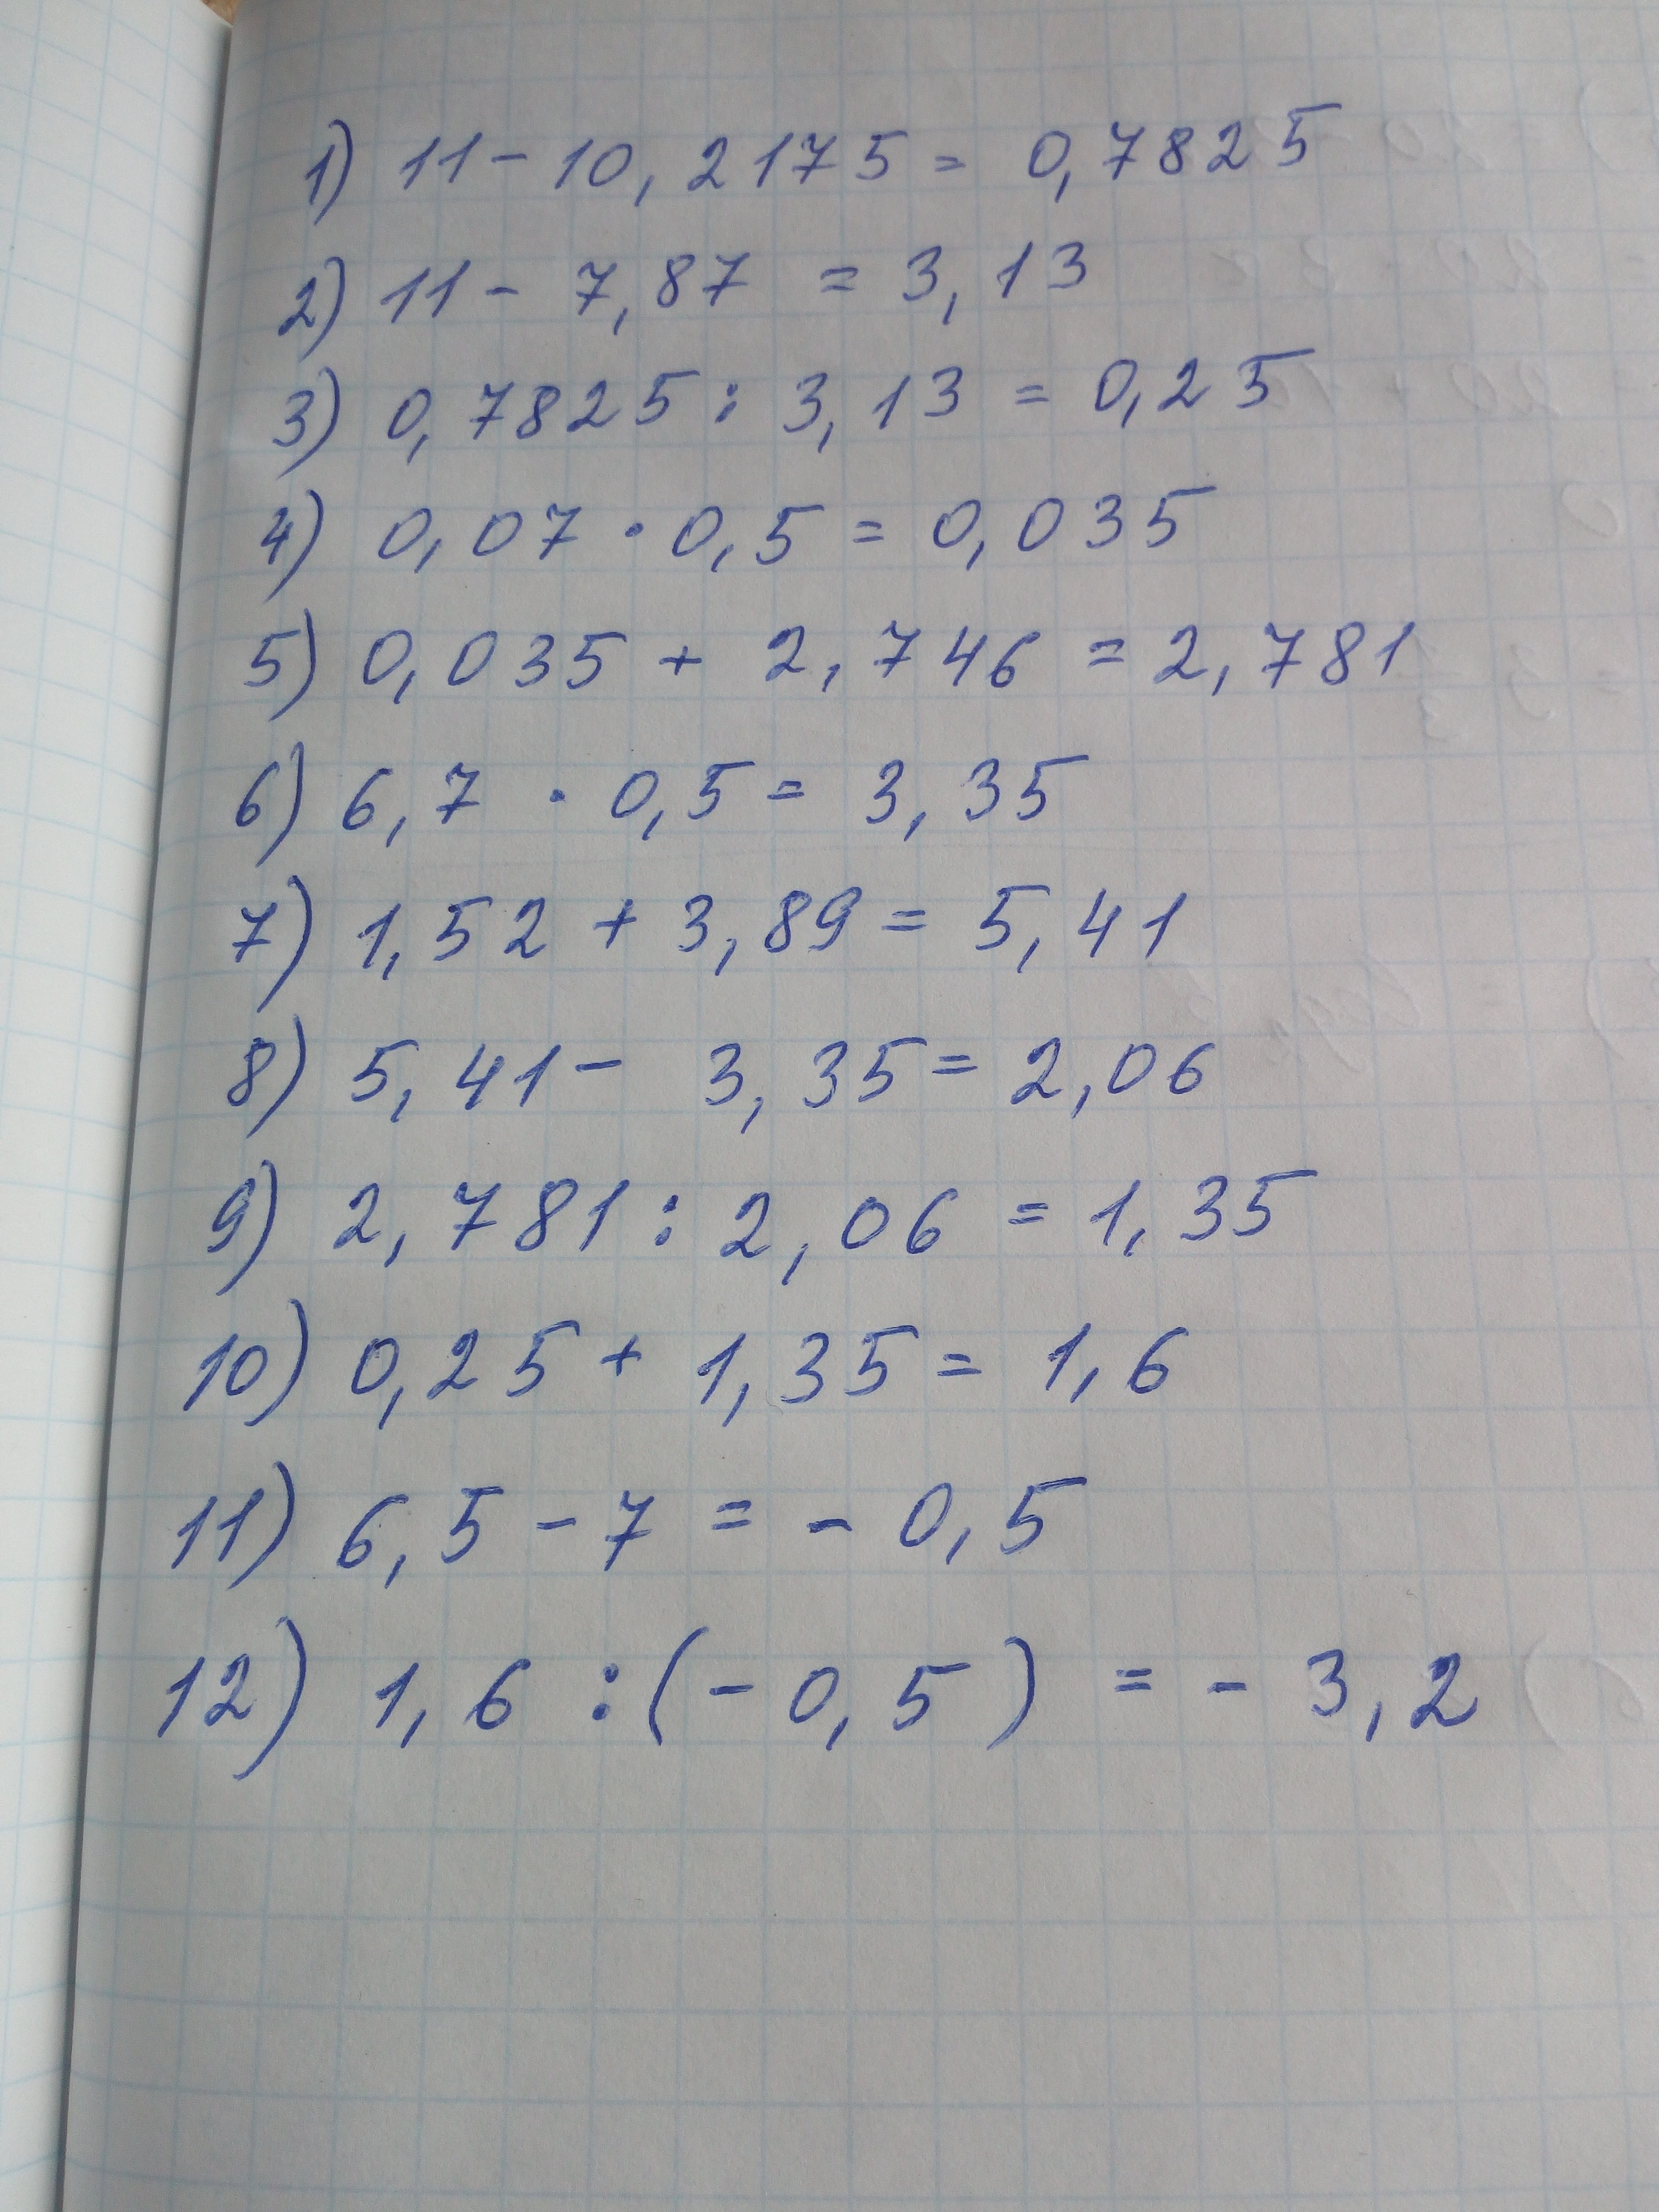 1) 11 - 10,2175 = 0,7825
2) 11 - 7,87 = 3,13
3) 0,7825 : 3,13 = 0,25
4) 0,07 · 0,5 = 0,035
5) 0,035 + 2,746 = 2,781
6) 6,7 · 0,5 = 3,35
7) 1,52 + 3,89 = 5,41
8) 5,41 - 3,35 = 2,06
9) 2,781 : 2,06 = 1,35
10) 0,25 + 1,35 = 1,6
11) 6,5 - 7 = - 0,5
12) 1,6 : (- 0,5) = - 3,2